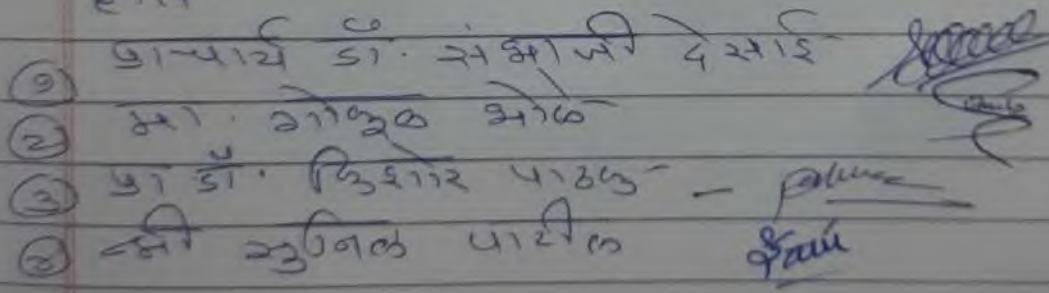 ① प्राचार्य डॉ. संभाजी देसाई
② मा. गोकूळ भोळे
③ प्रा डॉ. किशोर पाठक -
④ श्री सुनिल पाटील